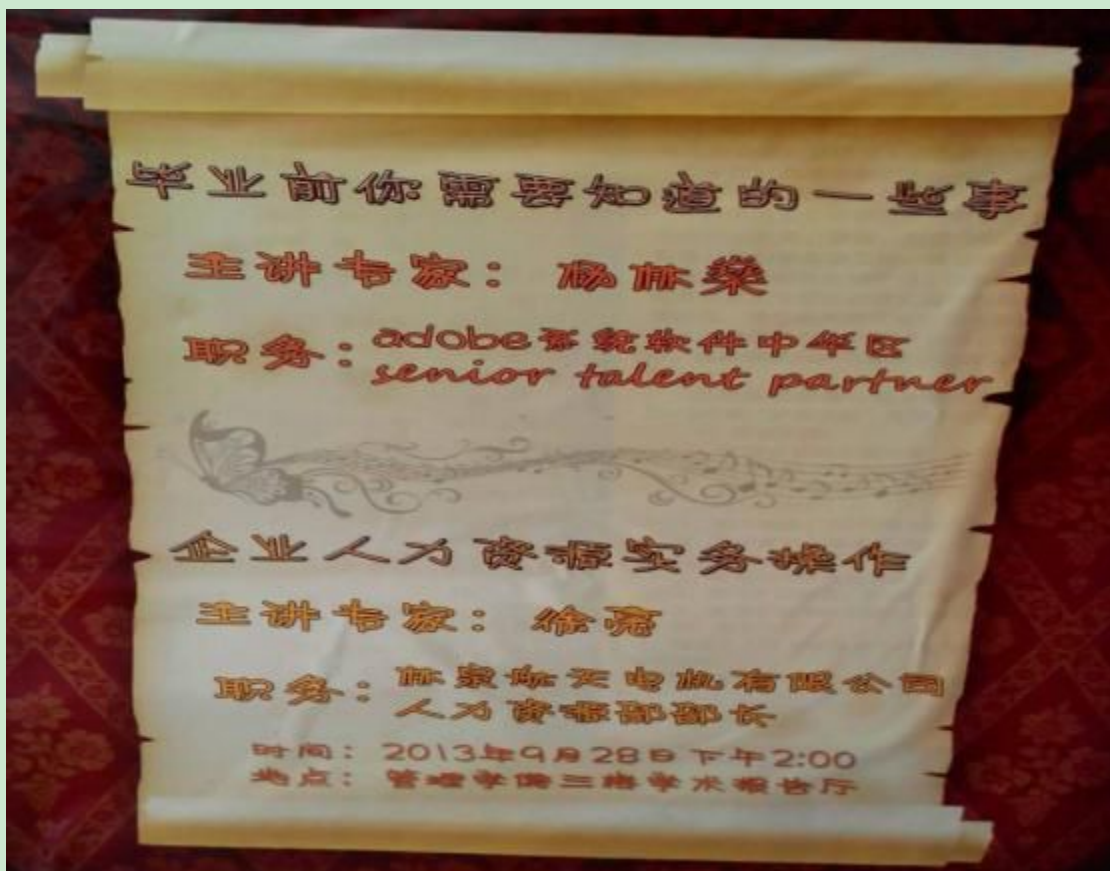 就业前你需要知道的一些事
主讲专家：杨林
职务：adobe系统软件中华区
senior talent partner
企业人力资源实务操作
主讲专家：徐亮
职务：林泉航天电机有限公司
人力资源部部长
时间：2013年9月28日下午2:00
地点：管理学院三楼学术报告厅